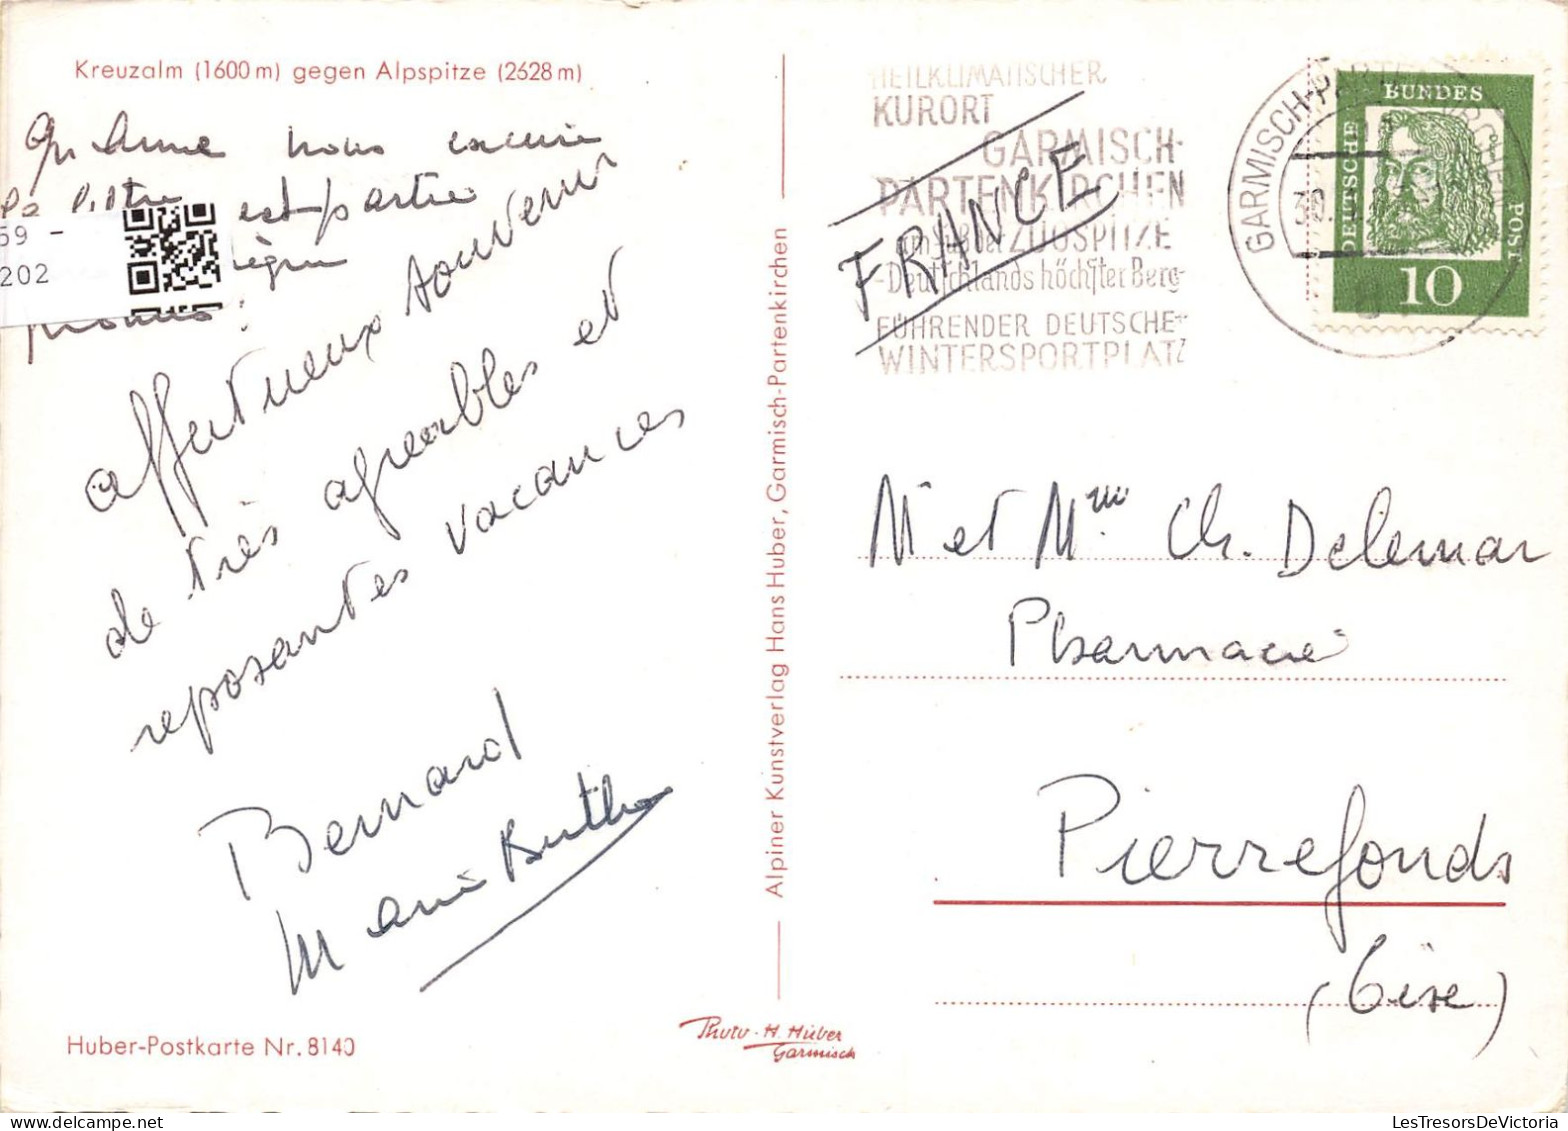 Kreuzalm (1600 m) gegen Alpspitze (2628 m)
Qu'Anne nous excuse
est partie
59 -
202
affectueux souvenir
de très agréables et
reposantes vacances
Bernard
Marie Berthe
Huber-Postkarte Nr. 8140
Alpiner Kunstverlag Hans Huber, Garmisch-Partenkirchen
Photo - H. Huber
Garmisch
HEILKLIMATISCHER
KURORT
GARMISCH-
PARTENKIRCHEN
am Fuße der ZUGSPITZE
-Deutschlands höchster Berg-
FÜHRENDER DEUTSCHE-
WINTERSPORTPLATZ
FRANCE
GARMISCH-PARTENKIRCHEN
30.
DEUTSCHE
BUNDES
POST
10
M et Mme Ch. Delemar
Pharmacie
Pierrefonds
(Oise)
LesTresorsDeVictoria